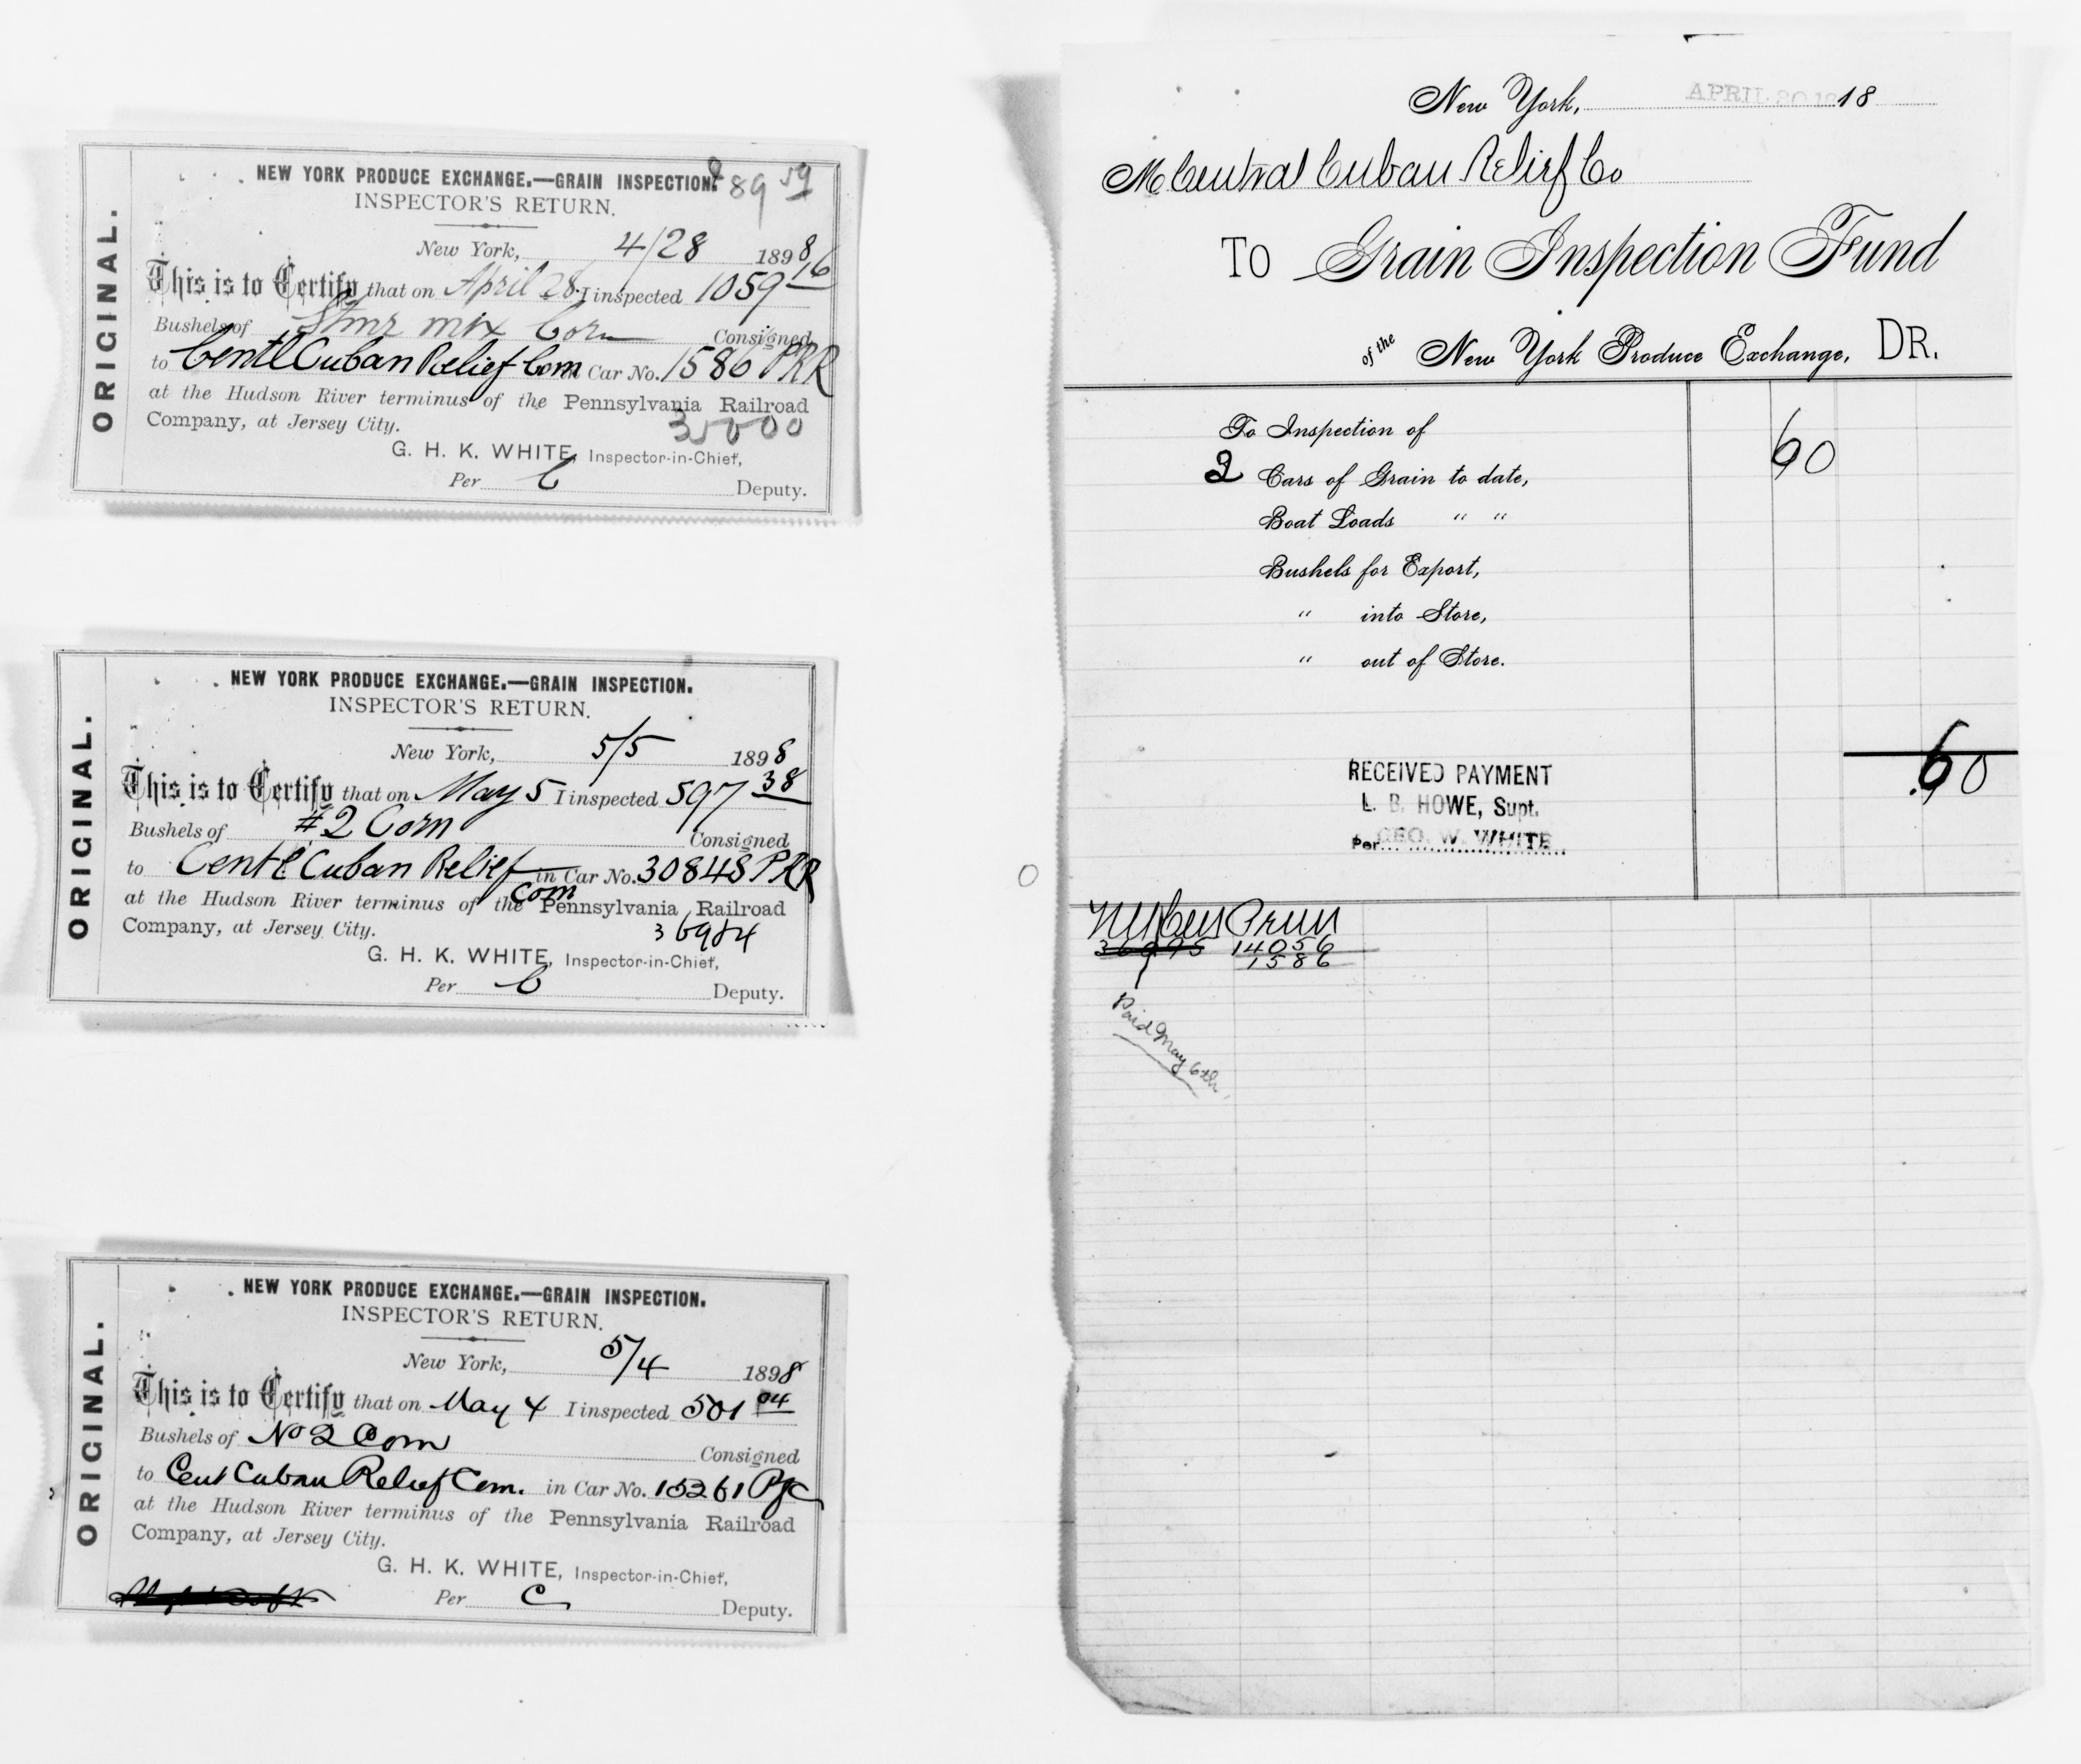 ORIGINAL.
NEW YORK PRODUCE EXCHANGE.—GRAIN INSPECTION.
89 59
INSPECTOR'S RETURN.
New York, 4/28 1898
This is to Certify that on April 28 I inspected 1059 16
Bushels of Stmr mix Corn Consigned
to Centl Cuban Relief Com Car No. 1586 PRR
at the Hudson River terminus of the Pennsylvania Railroad
Company, at Jersey City.
G. H. K. WHITE, Inspector-in-Chief,
Per C Deputy.
ORIGINAL.
NEW YORK PRODUCE EXCHANGE.—GRAIN INSPECTION.
INSPECTOR'S RETURN.
New York, 5/5 1898
This is to Certify that on May 5 I inspected 597 38
Bushels of #2 Corn Consigned
to Centl Cuban Relief Com in Car No. 30848 PRR
at the Hudson River terminus of the Pennsylvania Railroad
Company, at Jersey City.
36984
G. H. K. WHITE, Inspector-in-Chief,
Per C Deputy.
ORIGINAL.
NEW YORK PRODUCE EXCHANGE.—GRAIN INSPECTION.
INSPECTOR'S RETURN.
New York, 5/4 1898
This is to Certify that on May 4 I inspected 501 04
Bushels of No 2 Corn Consigned
to Cent Cuban Relief Com. in Car No. 15261
at the Hudson River terminus of the Pennsylvania Railroad
Company, at Jersey City.
G. H. K. WHITE, Inspector-in-Chief,
Per C Deputy.
New York, APRIL 30 18
M Central Cuban Relief Co
TO Grain Inspection Fund
of the New York Produce Exchange, DR.
To Inspection of
2 Cars of Grain to date, 60
Boat Loads " "
Bushels for Export,
" into Store,
" out of Store.
60
RECEIVED PAYMENT
L. B. HOWE, Supt.
Per GEO. W. WHITE
36995 14056
1586
Paid May 6th.